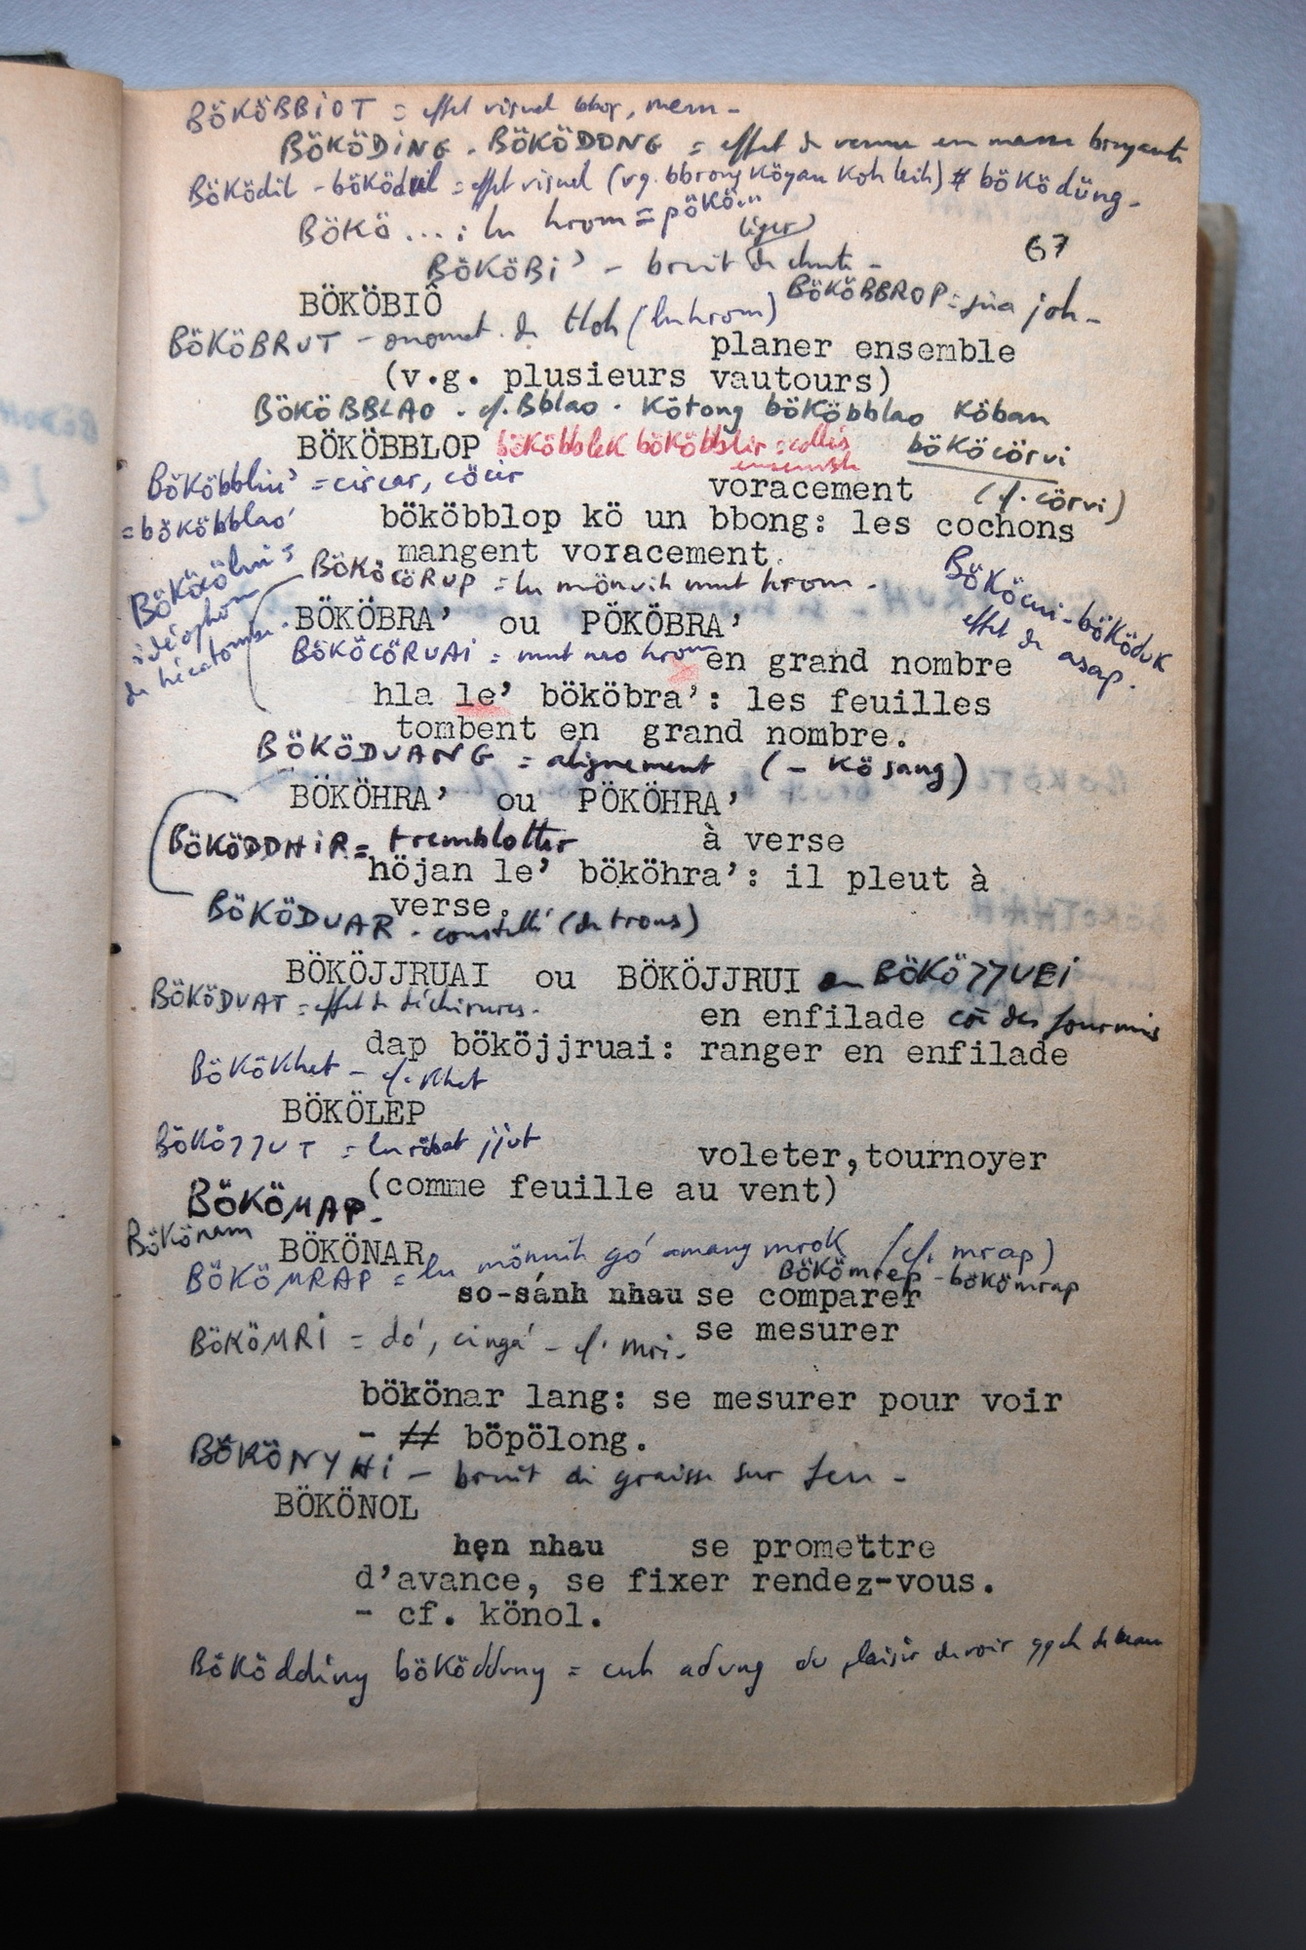 BÖKÖBBIOT = effet visuel bbor, mem -
BÖKÖDING - BÖKÖDONG = effet de venue en masse bruyante
BÖKÖdil - böködul = effet visuel (vg. bbrong Köyau Koh leih) # böködüng -
BÖKÖ ... : lu hrom = pökö...
67
BÖKÖBI' - bruit de chute -
BÖKÖBIÔ
BÖKÖBBROP = jua joh -
BÖKÖBRUT - onomat. de tloh (lu hrom)
planer ensemble
(v.g. plusieurs vautours)
BÖKÖBBLAO - cf. Bblao - Kötong bököbblao Köban
BÖKÖBBLOP bököbblek bököbblir = collés ensemble
bököcörvi
(cf. cörvi)
Bököbbliu' = circar, cöcir
= bököbblao'
voracement
bököbblop kö un bbong: les cochons
mangent voracement.
idéophone
de hécatombe.
BÖKÖCÖRUP = lu mönuih mut hrom -
BÖKÖcui - bököduk
effet de asap.
BÖKÖBRA' ou PÖKÖBRA'
BÖKÖCÖRUAI = mut nao hrom
en grand nombre
hla le' bököbra': les feuilles
tombent en grand nombre.
BÖKÖDUANG = alignement (- kö sang)
BÖKÖHRA' ou PÖKÖHRA'
BÖKÖDDHIR = tremblotter
à verse
höjan le' bököhra': il pleut à
verse.
BÖKÖDUAR - constellé (de trous)
BÖKÖJJRUAI ou BÖKÖJJRUI ou BÖKÖJJUEI
BÖKÖDUAT = effet de déchirures -
en enfilade cō des fourmis
dap bököjjruai: ranger en enfilade
BÖKÖKhet - cf. Khet
BÖKÖLEP
BÖKÖJJUT = lu röbat jjut
voleter,tournoyer
(comme feuille au vent)
BÖKÖMAP -
Bökönam
BÖKÖNAR
BÖKÖMRAP = lu mönuih gó amang mrok (cf. mrap)
Bökömrep - bökömrap
so-sánh nhau se comparer
BÖKÖMRI = dó, cingá - cf. mri -
se mesurer
bökönar lang: se mesurer pour voir
- # böpölong.
BÖKÖNYHI - bruit de graisse sur feu -
BÖKÖNOL
hẹn nhau se promettre
d'avance, se fixer rendez-vous.
- cf. könol.
Bököddiny böködduny = cuh adung du plaisir de voir qqch de beau